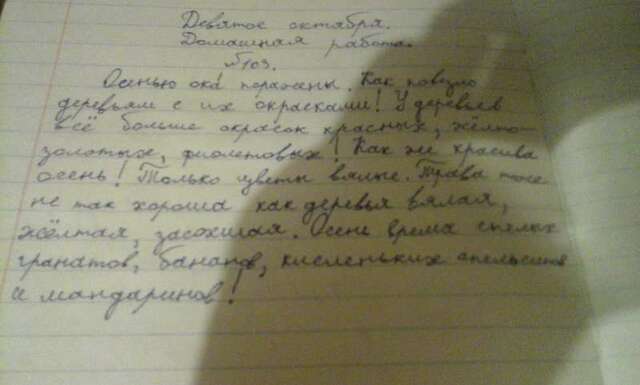 Девятое октября.
Домашная работа.
№103.
Осенью ока поражены. Как повезло
деревьям с их окрасками! У деревьев
всё больше окрасок красных, жёлто-
золотых, фиолетовых! Как же красива
осень! Только цветы вялые. Трава тоже
не так хороша как деревья вялая,
жёлтая, засохшая. Осень время спелых
гранатов, бананов, кисленьких апельсинов
и мандаринов!